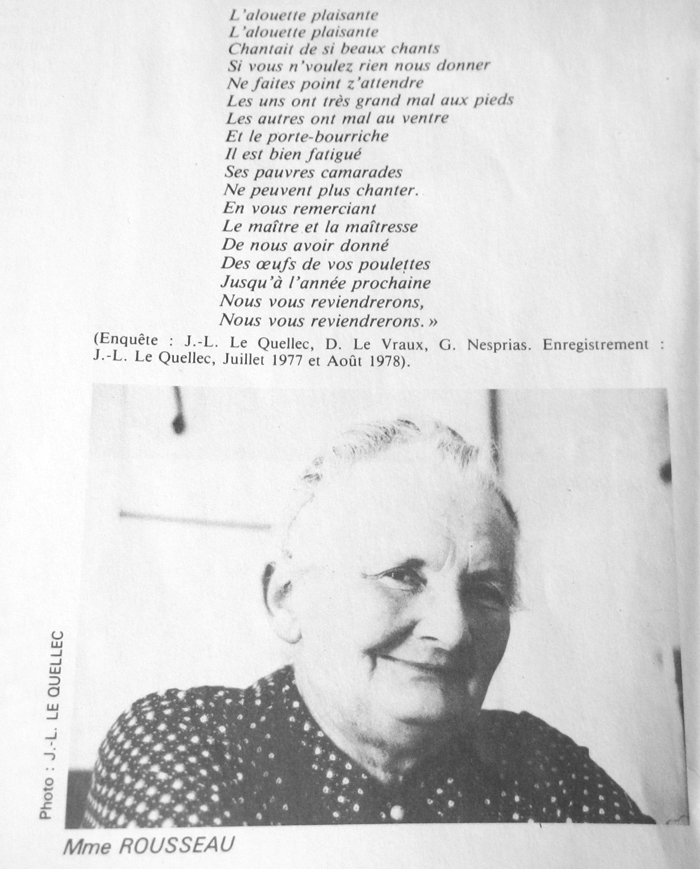 L'alouette plaisante
L'alouette plaisante
Chantait de si beaux chants
Si vous n'voulez rien nous donner
Ne faites point z'attendre
Les uns ont très grand mal aux pieds
Les autres ont mal au ventre
Et le porte-bourriche
Il est bien fatigué
Ses pauvres camarades
Ne peuvent plus chanter.
En vous remerciant
Le maître et la maîtresse
De nous avoir donné
Des œufs de vos poulettes
Jusqu'à l'année prochaine
Nous vous reviendrerons,
Nous vous reviendrerons. »
(Enquête : J.-L. Le Quellec, D. Le Vraux, G. Nesprias. Enregistrement :
J.-L. Le Quellec, Juillet 1977 et Août 1978).
Photo : J.-L. LE QUELLEC
Mme ROUSSEAU